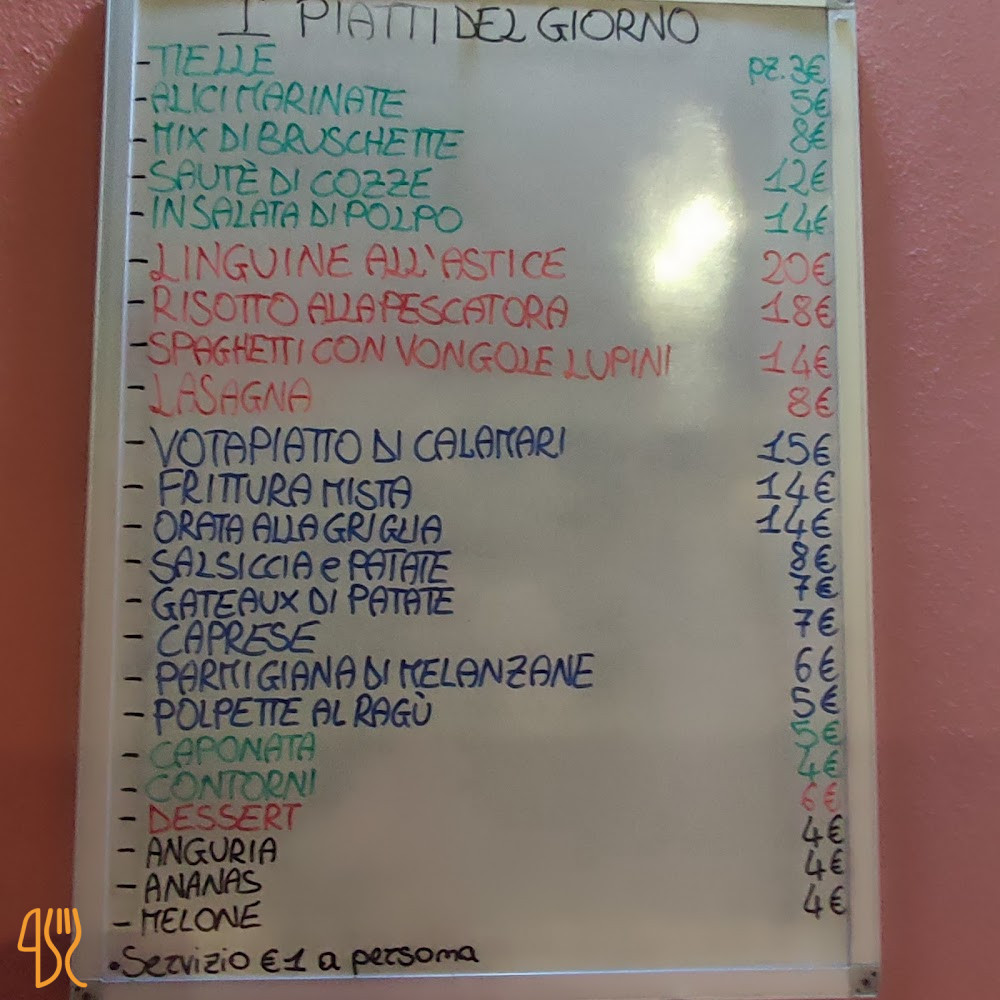 I PIATTI DEL GIORNO
- TIELLE pz. 3€
- ALICI MARINATE 5€
- MIX DI BRUSCHETTE 8€
- SAUTÈ DI COZZE 12€
- INSALATA DI POLPO 14€
- LINGUINE ALL'ASTICE 20€
- RISOTTO ALLA PESCATORA 18€
- SPAGHETTI CON VONGOLE LUPINI 14€
- LASAGNA 8€
- VOTAPIATTO DI CALAMARI 15€
- FRITTURA MISTA 14€
- ORATA ALLA GRIGLIA 14€
- SALSICCIA e PATATE 8€
- GATEAUX DI PATATE 7€
- CAPRESE 7€
- PARMIGIANA DI MELANZANE 6€
- POLPETTE AL RAGÙ 5€
- CAPONATA 5€
- CONTORNI 4€
- DESSERT 6€
- ANGURIA 4€
- ANANAS 4€
- MELONE 4€
• Servizio €1 a persoma